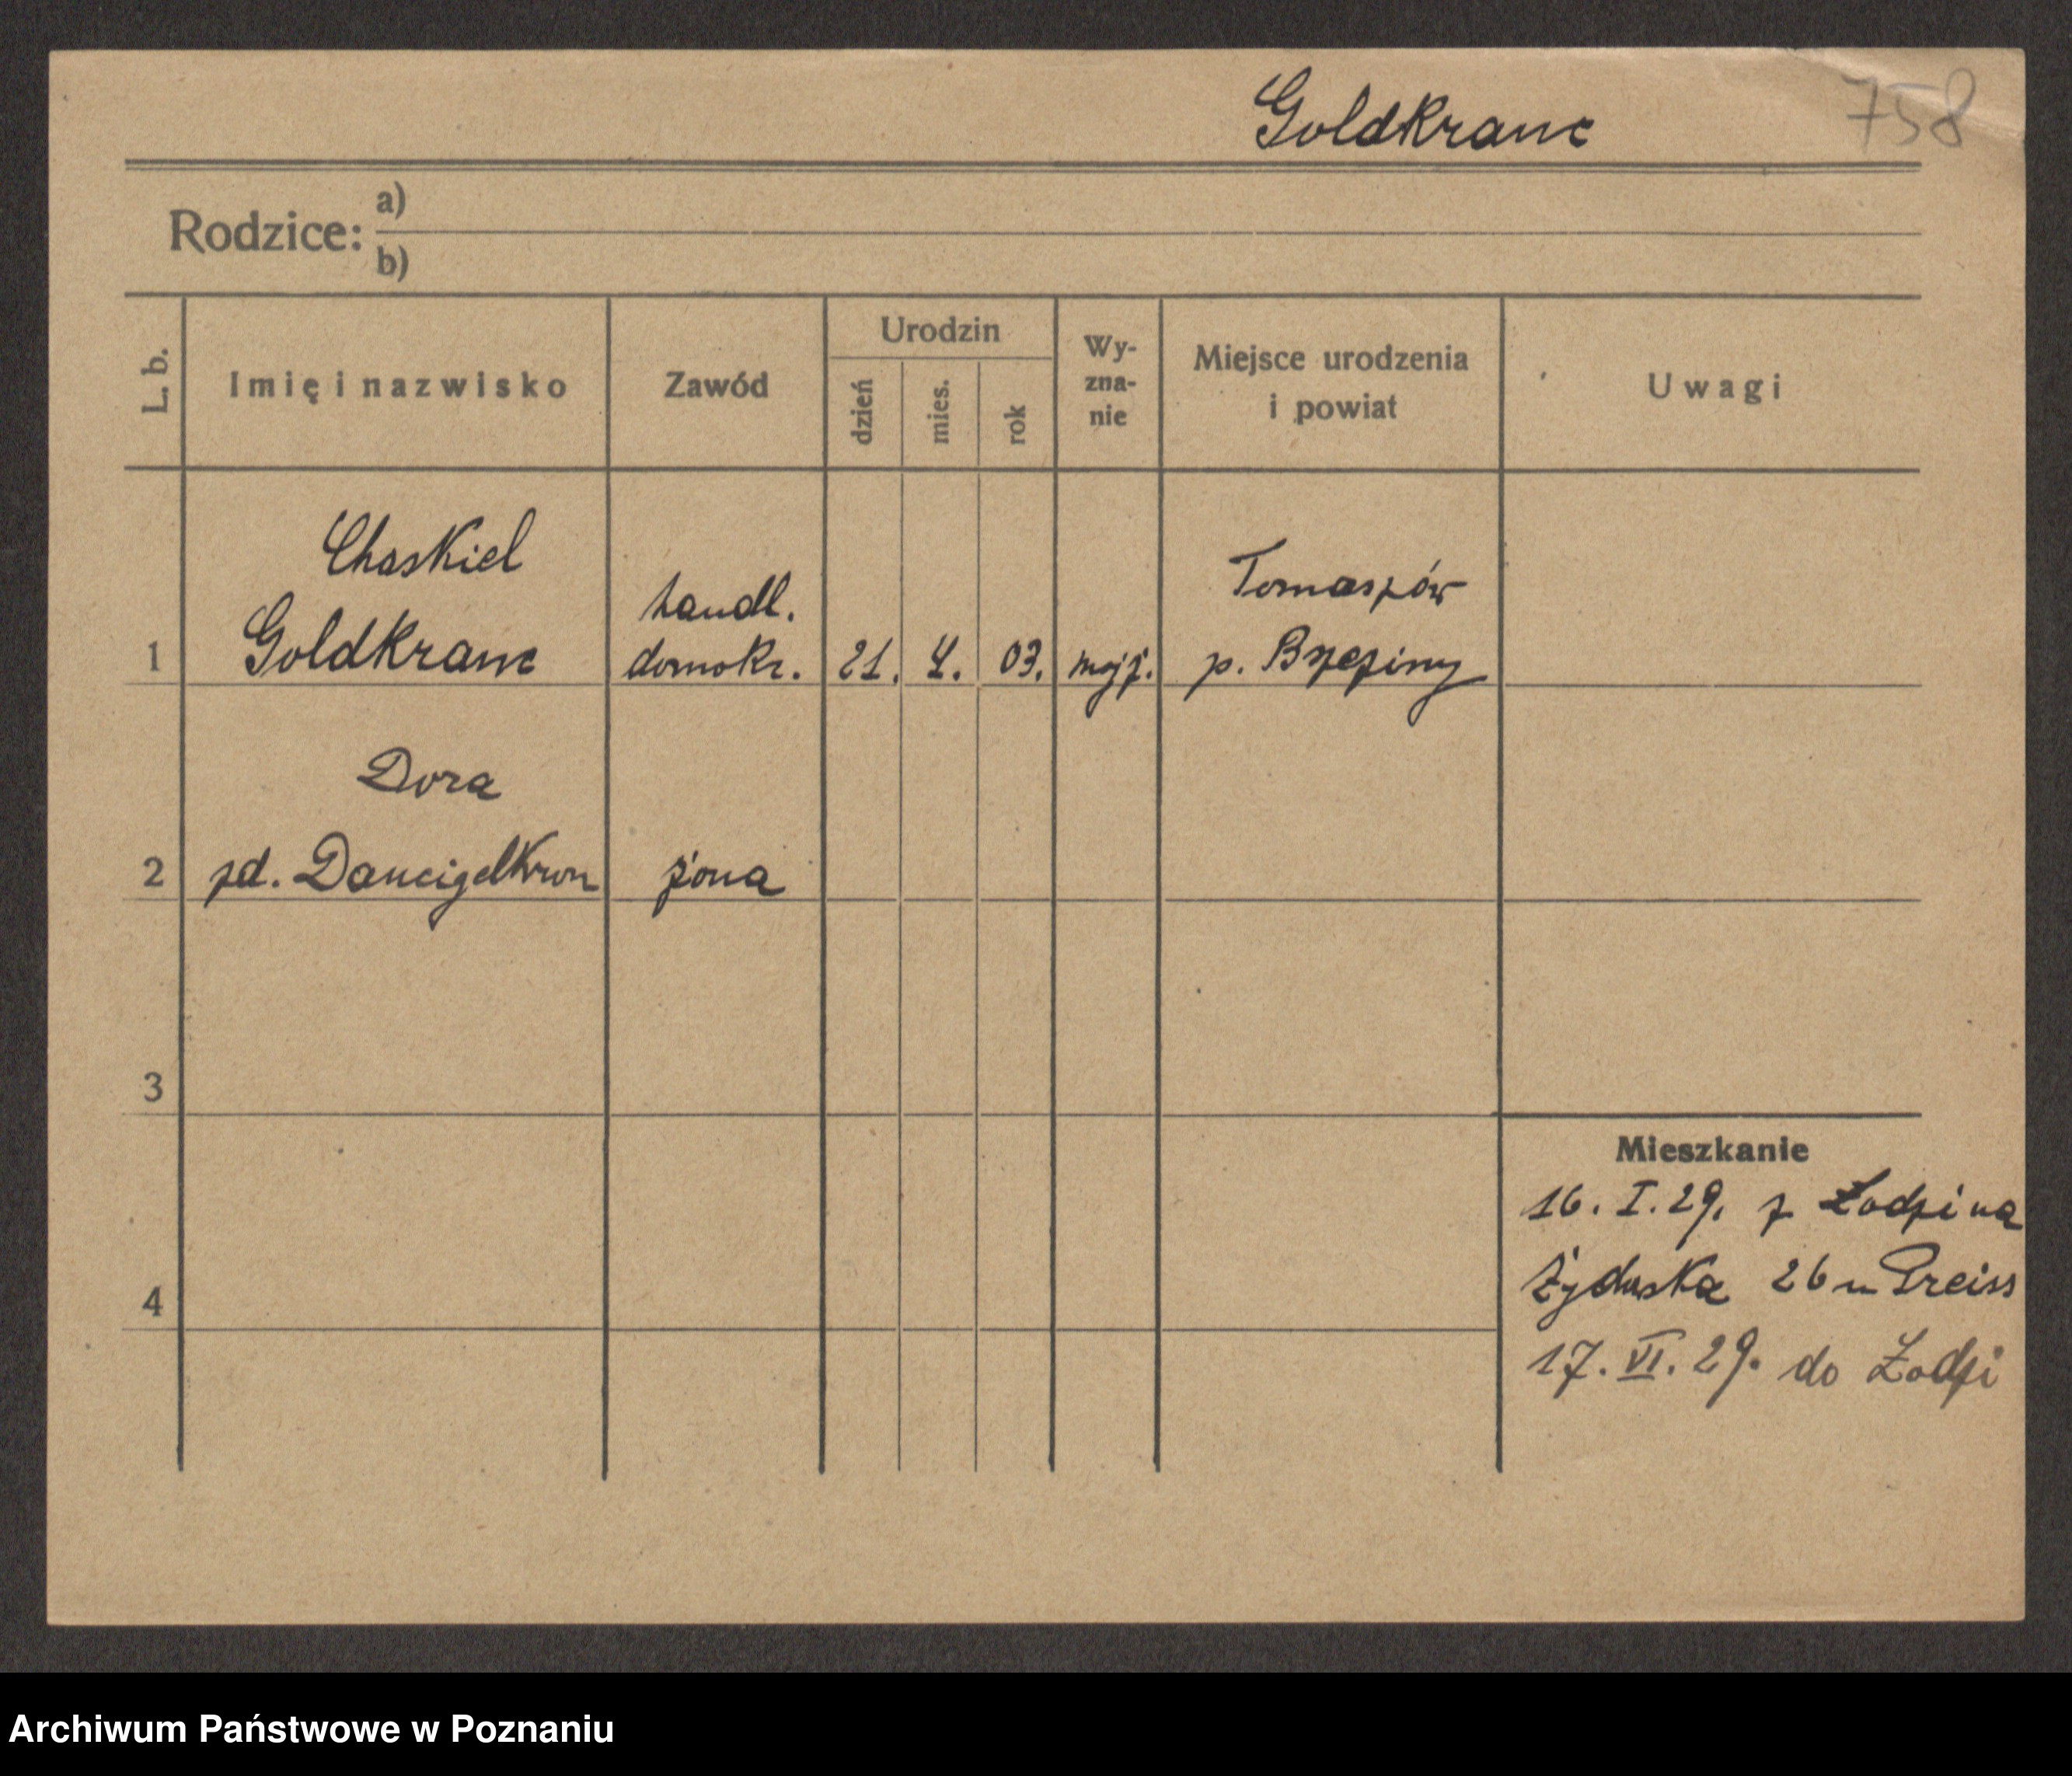 Goldkranc 758
Rodzice:
a)
b)
L. b.
Imię i nazwisko
Zawód
Urodzin
dzień
mies.
rok
Wy-
zna-
nie
Miejsce urodzenia
i powiat
Uwagi
Chaskiel
Goldkranc
handl.
domokr.
1
21. 4. 03.
mojż.
Tomaszów
p. Brzeziny
Dora
2
zd. Dancigelkron
żona
3
4
Mieszkanie
16. I. 29. z Łodzi na
Żydowska 26 u Preiss
17. VI. 29. do Łodzi
Archiwum Państwowe w Poznaniu